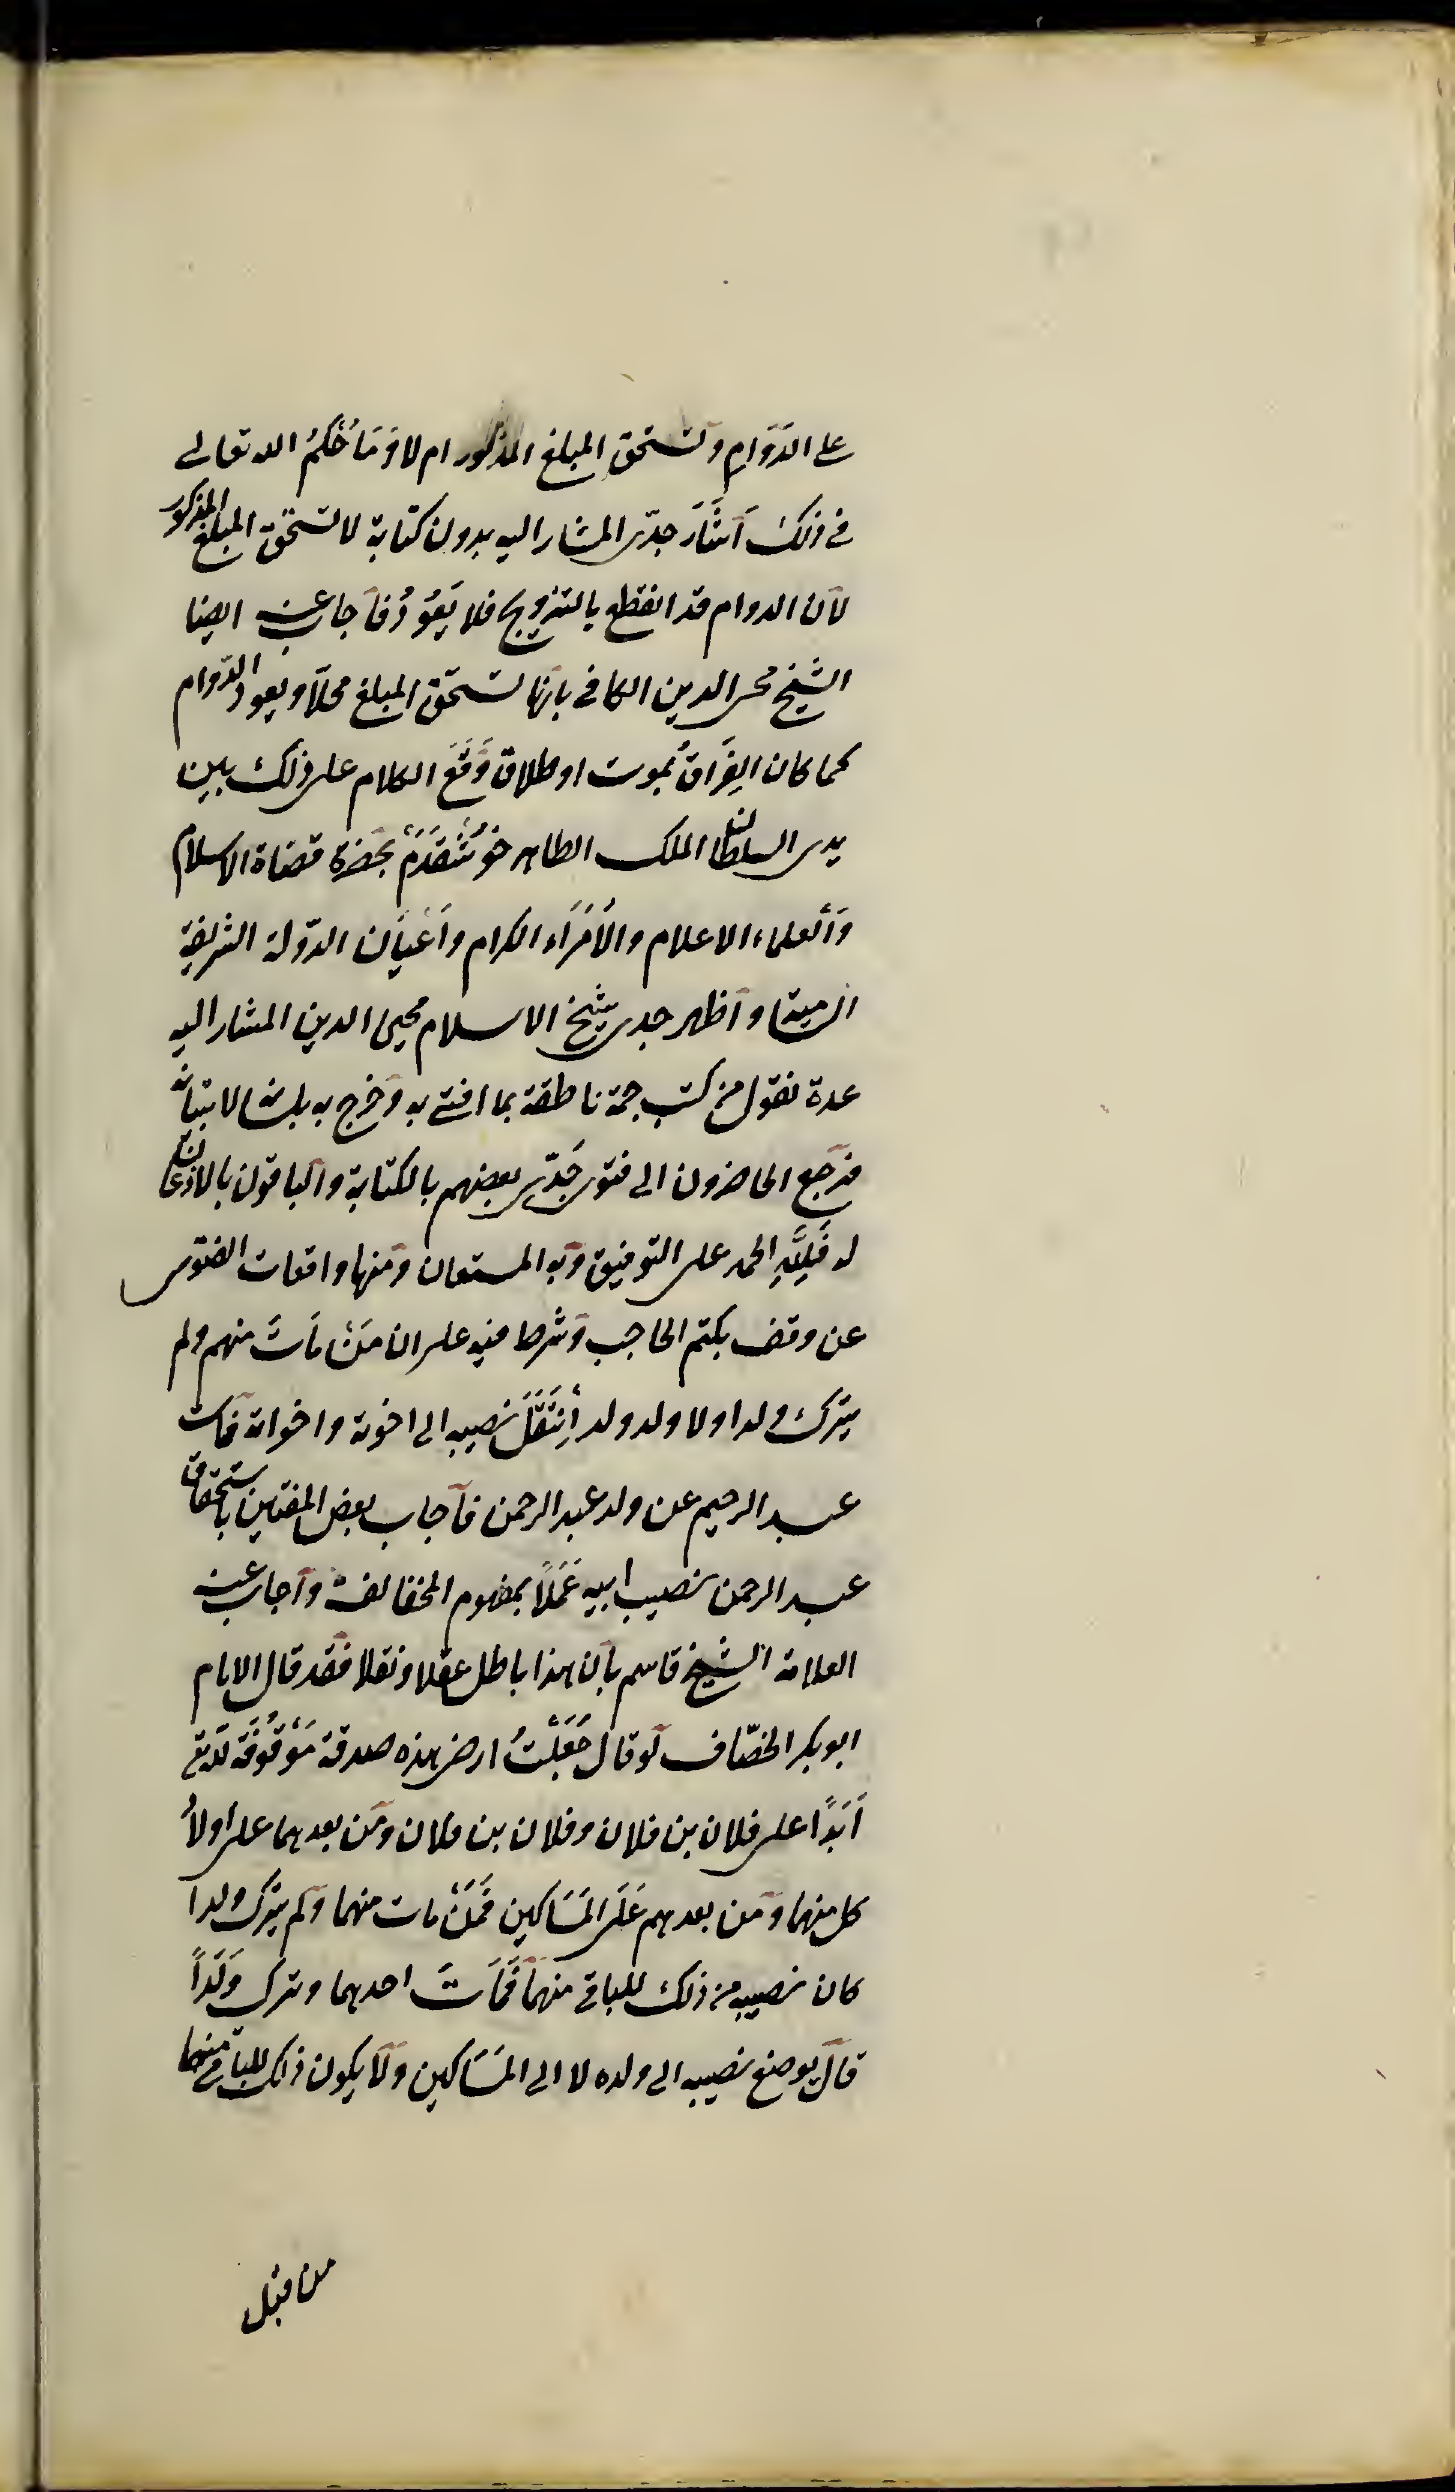 على الدَّوَامِ وتستحق المبلغ المذكور ام لا وَمَا حُكمُ الله تعالى
فى ذلك اَشَارَ جدّى المشار اليه بدون كتابة لا تستحق المبلغ المذكور
لان الدوام قد انقطع بالتزويج فلا يَعُودُ فاجاب عنه ايضا
الشيخ محى الدين الكافى بانها تستحق المبلغ محلاً ويعود الدّوام
كما كان الفِرَاقُ بموت او طلاق وَقَعَ الكلام على ذلك بين
يدى السلطان الملك الظاهر خوشقدم بحضرة قضاة الاسلام
والعلماء الاعلام والاُمَرَاء الكرام واَعْيَان الدّولة الشريفة
واظهر جدى شيخ الاسلام محيى الدين المشار اليه
عدة نقول من كتب جمة ناطقة بما افتى به وخرج به
فرجع الحاضرون الى فتوى جَدّى بعضهم بالكتابة والباقون بالاذعان
له فَلِلَّهِ الحمد على التوفيق وبه المستعان ومنها واقعات الفتوى
عن وقف بكتم الحاجب وشرط فيه على ان مَنْ مَاتَ منهم ولم
يترك ولدا ولا ولد ولد اِنْتَقَلَ نصيبه الى اخوته واخواته فمات
عبد الرحيم عن ولد عبد الرحمن فاجاب بعض المفتين باستحقاق
عبد الرحمن نصيب ابيه عَمَلاً بمفهوم المخالفة واجاب عنه
العلامة الشيخ قاسم بان هذا باطل عقلا ونقلا فقد قال الامام
ابو بكر الخصّاف لو قال جَعَلْتُ ارضى هذه صدقة مَوْقُوفَة لله تع
اَبَدًا على فلان بن فلان وفلان بن فلان ومن بعدهما على اولاد
كل منهما ومن بعدهم عَلَى المَسَاكين فَمَنْ مات منهما ولم يترك ولدا
كان نصيبه من ذلك للباقى منهما فَمَاتَ احدهما وترك وَلَدًا
قال يوضع نصيبه الى ولده لا الى المَسَاكين ولا يكون ذلك للباقى منهما
من قبل